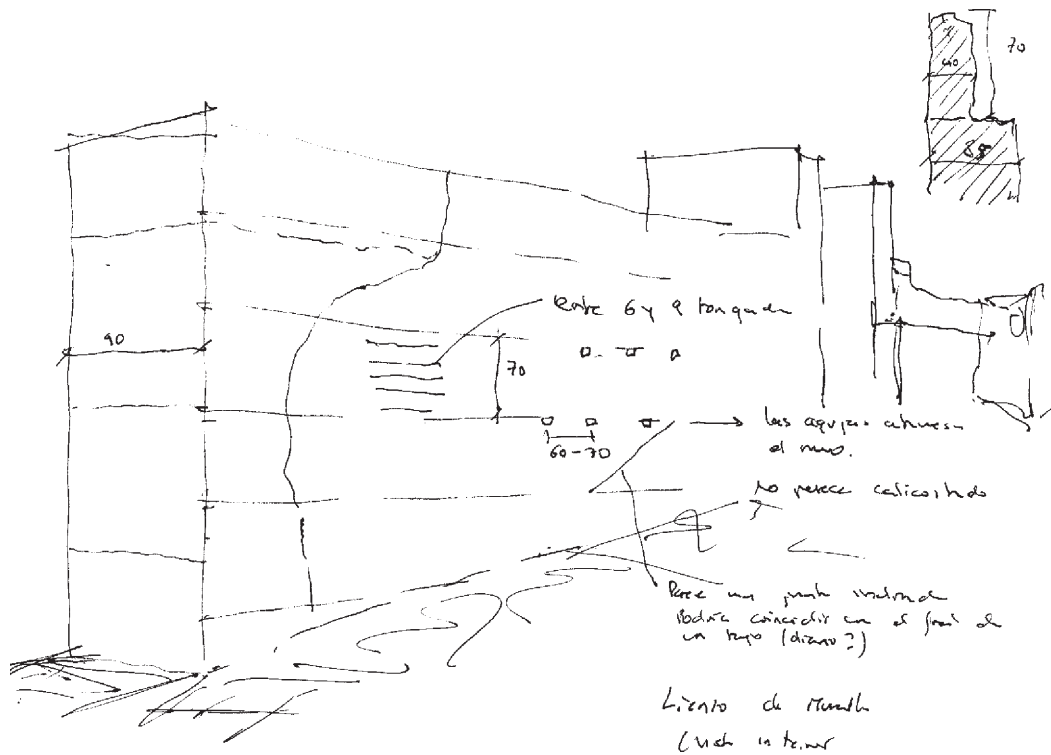 70
40
85
Entre 6 y 9 tongadas
90
70
60-70
las agujas atraviesan
el muro.
No parece calicostrado
?
Parece una junta inclinada
Podría coincidir con el final de
un tajo (diario?)
Lienzo de Muralla
(vista interior